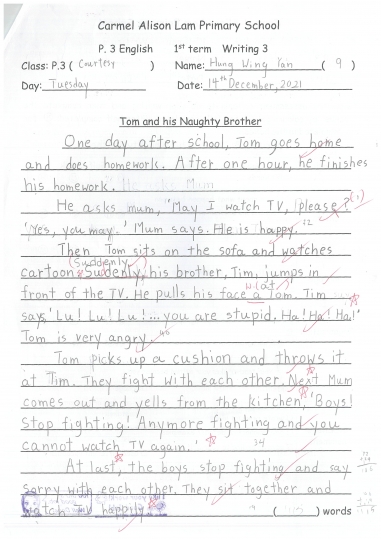 Carmel Alison Lam Primary School
P. 3 English 1st term Writing 3
Class: P.3 ( Courtesy ) Name: Hung Wing Yan ( 9 )
Day: Tuesday Date: 14th December, 2021
Tom and his Naughty Brother
One day after school, Tom goes home
and does homework. After one hour, he finishes
his homework. He asks Mum
He asks mum, "May I watch TV, please?"
'Yes, you may.' Mum says. He is happy.
Then Tom sits on the sofa and watches
(Suddenly
cartoon. Sudenly, his brother, Tim, jumps in
front of the TV. He pulls his face a Tom. Tim
at
says, 'Lu! Lu! Lu!... you are stupid. Ha! Ha! Ha!'
Tom is very angry.
Tom picks up a cushion and throws it
at Tim. They fight with each other. Next Mum
comes out and yells from the kitchen, 'Boys!
Stop fighting! Anymore fighting and you
cannot watch TV again.'
34
At last, the boys stop fighting and say
sorry with each other. They sit together and
watch TV happily.
( ) words